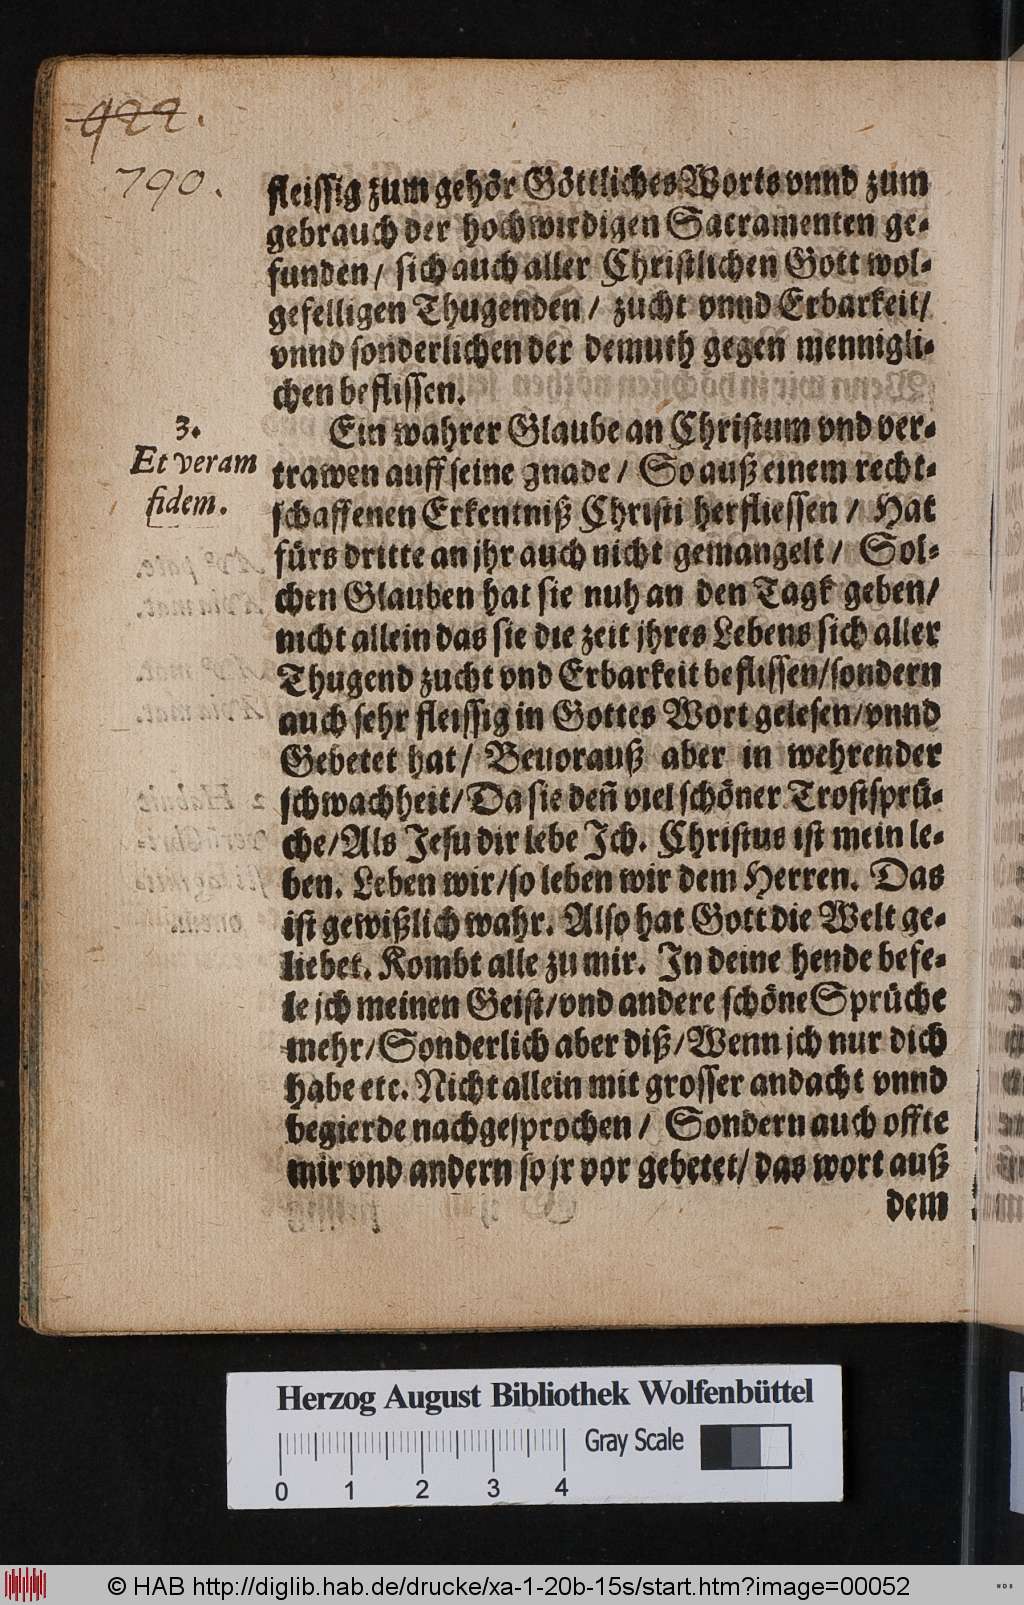 422.
790.
fleissig zum gehör Göttliches Worts vnnd zum
gebrauch der hochwirdigen Sacramenten ge-
funden/ sich auch aller Christlichen Gott wol-
gefelligen Thugenden/ zucht vnnd Erbarkeit/
vnnd sonderlichen der demuth gegen mennigli-
chen beflissen.
3.
Et veram
fidem.
Ein wahrer Glaube an Christum vnd ver-
trawen auff seine gnade/ So auß einem recht-
schaffenen Erkentniß Christi herfliessen/ Hat
fürs dritte an jhr auch nicht gemangelt/ Sol-
chen Glauben hat sie nuh an den Tagk geben/
nicht allein das sie die zeit jhres Lebens sich aller
Thugend zucht vnd Erbarkeit beflissen/sondern
auch sehr fleissig in Gottes Wort gelesen/vnnd
Gebetet hat/ Beuorauß aber in wehrender
schwachheit/Da sie deñ viel schöner Trostsprü-
che/Als Jesu dir lebe Ich. Christus ist mein le-
ben. Leben wir/so leben wir dem Herren. Das
ist gewißlich wahr. Also hat Gott die Welt ge-
liebet. Kombt alle zu mir. In deine hende befe-
le jch meinen Geist/vnd andere schöne Sprüche
mehr/Sonderlich aber diß/Wenn jch nur dich
habe etc. Nicht allein mit grosser andacht vnnd
begierde nachgesprochen/ Sondern auch offte
mir vnd andern so jr vor gebetet/ das wort auß
dem
Herzog August Bibliothek Wolfenbüttel
Gray Scale
0 1 2 3 4
© HAB http://diglib.hab.de/drucke/xa-1-20b-15s/start.htm?image=00052